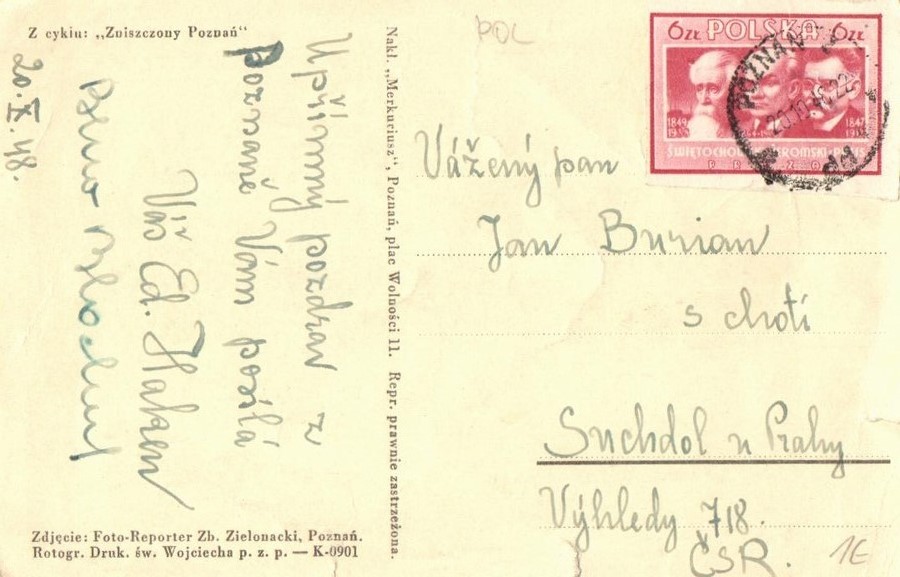 Z cyklu: „Zniszczony Poznań"
20.X.48.
Upřímný pozdrav z
Poznaně Vám posílá
Váš Ed. Haken
Nakł. „Merkuriusz", Poznań, plac Wolności 11. Repr. prawnie zastrzeżona.
POL
6 ZŁ POLSKA 6 ZŁ
1849
1847
ŚWIĘTOCHOWSKI ŻEROMSKI PRUS
POZNAŃ
Vážený pan
Jan Burian
s chotí
Suchdol u Prahy
Výhledy 718.
ČSR.
1E
Zdjęcie: Foto-Reporter Zb. Zielonacki, Poznań.
Rotogr. Druk. św. Wojciecha p. z. p. — K-0901